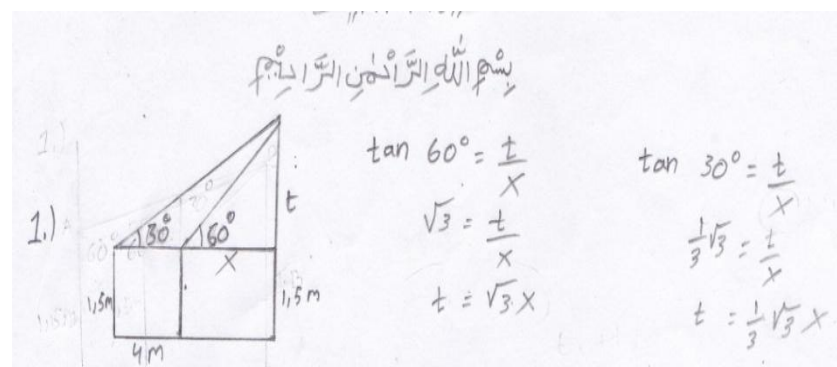 بِسْمِ اللَّهِ الرَّحْمٰنِ الرَّحِيْمِ
1.)
30°
60°
t
x
1,5m
1,5m
4m
tan 60° = t/x
√3 = t/x
t = √3 x
tan 30° = t/x
1/3 √3 = t/x
t = 1/3 √3 x